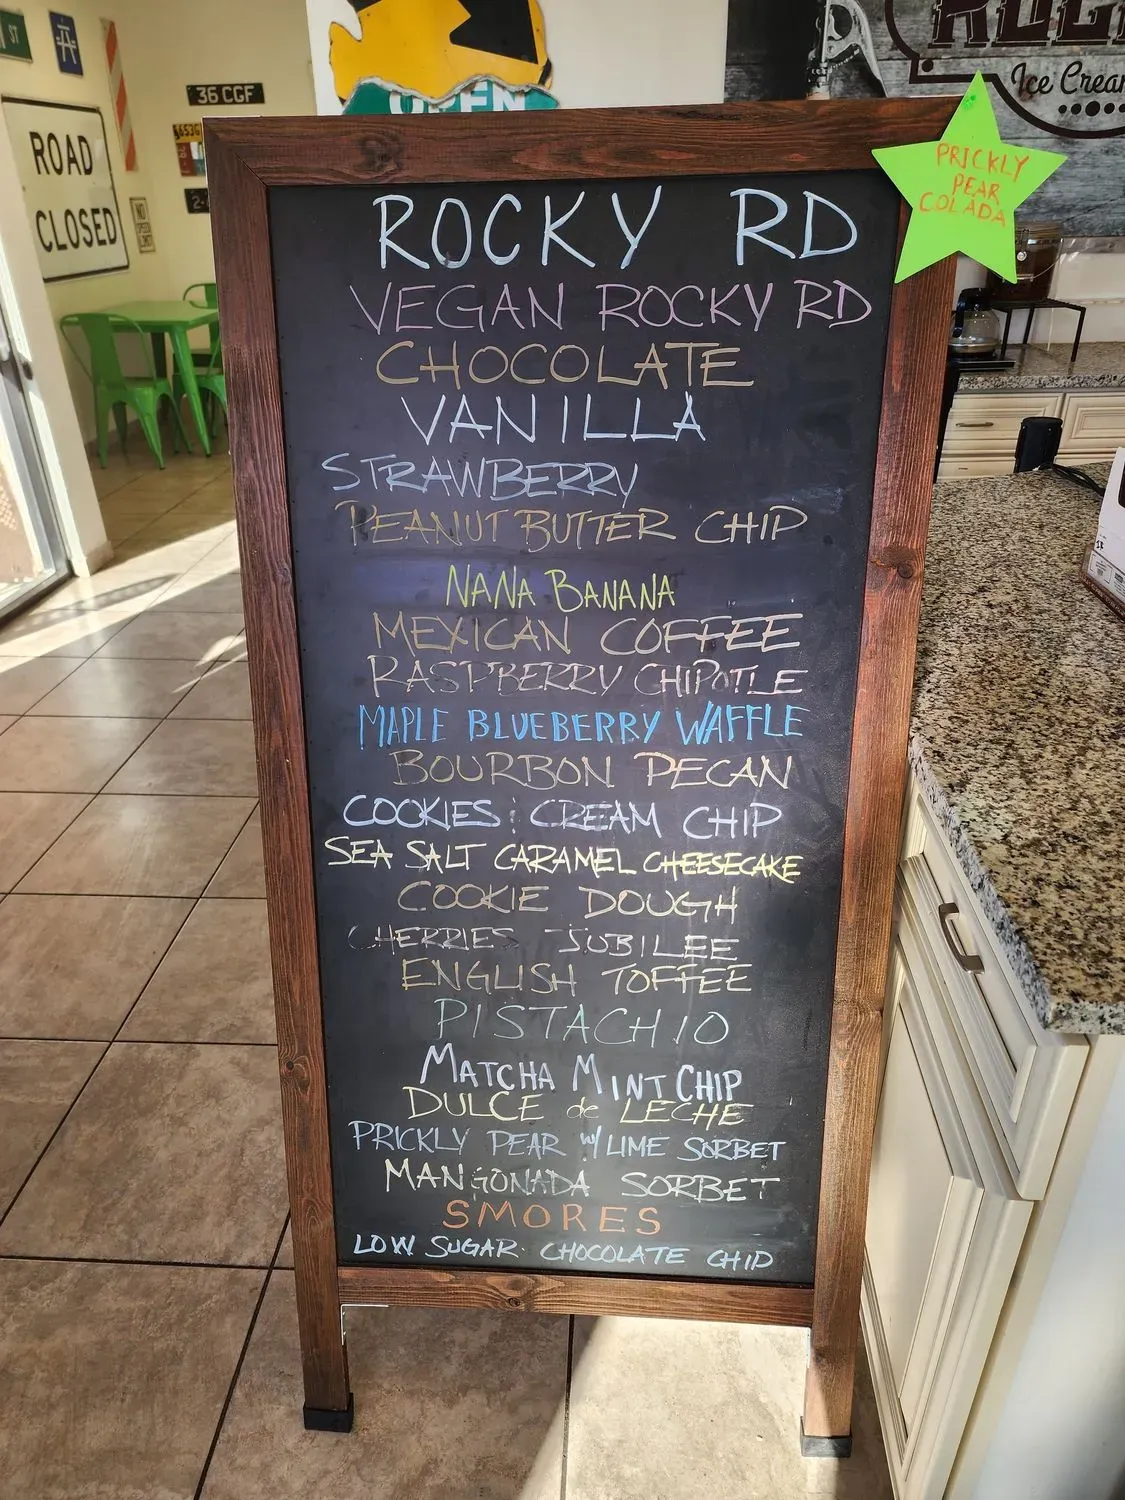 ST
36 CGF
ROAD
CLOSED
NO
SPEED
LIMIT
OPEN
Ice Crea
PRICKLY
PEAR
COLADA
ROCKY RD
VEGAN ROCKY RD
CHOCOLATE
VANILLA
STRAWBERRY
PEANUT BUTTER CHIP
NANA BANANA
MEXICAN COFFEE
RASPBERRY CHIPOTLE
MAPLE BLUEBERRY WAFFLE
BOURBON PECAN
COOKIES : CREAM CHIP
SEA SALT CARAMEL CHEESECAKE
COOKIE DOUGH
CHERRIES JUBILEE
ENGLISH TOFFEE
PISTACHIO
MATCHA MINT CHIP
DULCE de LECHE
PRICKLY PEAR w/LIME SORBET
MANGONADA SORBET
SMORES
LOW SUGAR CHOCOLATE CHIP